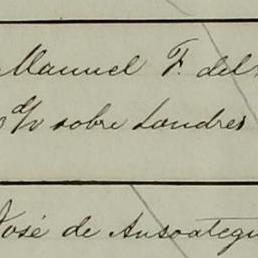 Manuel F. del
d/v sobre Londres
José de Ansoategu